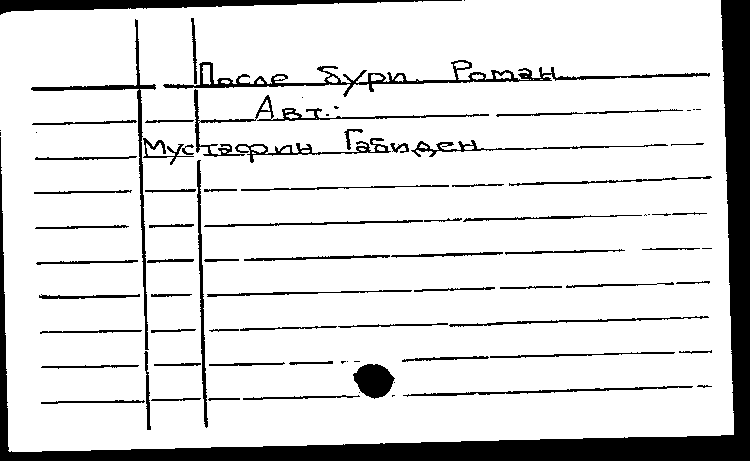 После бури. Роман
Авт.:
Мустафин Габиден